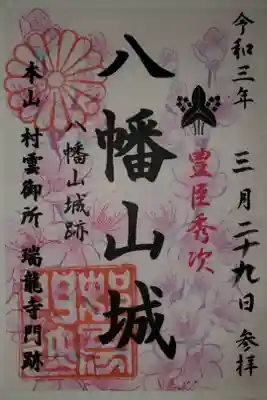 令和三年 三月二十九日 参拝
豊臣秀次
八幡山城
八幡山城跡
本山 村雲御所 瑞龍寺門跡